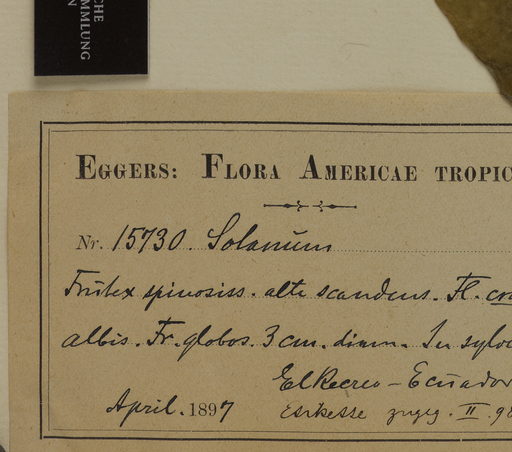 CHE
MMLUNG
N
EGGERS: FLORA AMERICAE TROPIC
Nr. 15730. Solanum
Frutex spinosiss. alte scandens. Fl.
albis. Fr. globos. 3 cm. diam. In sylv
El Recreo - Ecuador
April. 1897 II. 98